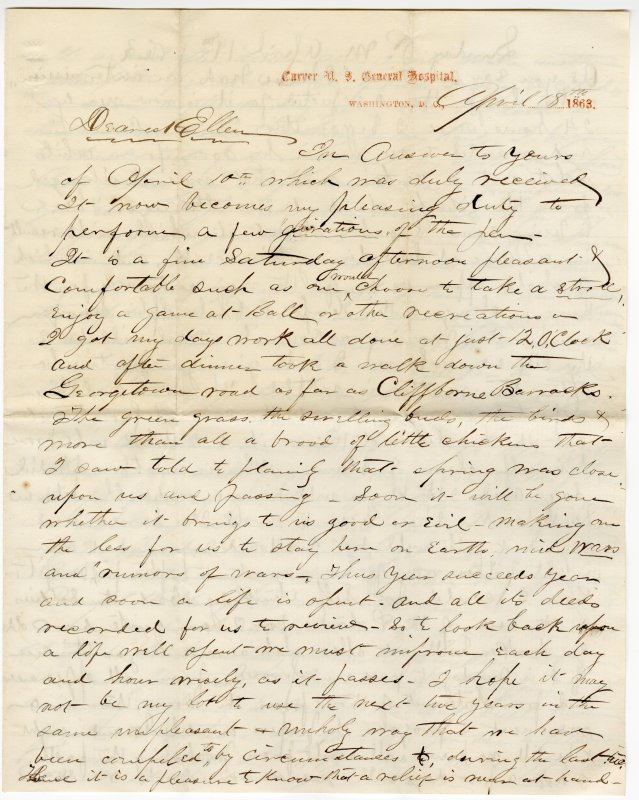 Carver U. S. General Hospital.
WASHINGTON, D. C., April 18th 1863.
Dearest Ellen
In Answer to yours
of April 10th which was duly received
It now becomes my pleasing duty to
perform a few girations of the pen –
It is a fine Saturday afternoon pleasant &
Comfortable such as one would choose to take a strole,
Enjoy a game at Ball or other recreations –
I got my days work all done at just 12 O,Clock
and after dinner took a walk down the
Georgetown road as far as Cliffborne Barracks.
The green grass the swelling buds, the birds &
more than all a brood of little chickens that
I saw told to plainly that spring was close
upon us and passing – Soon it will be gone
whether it brings to us good or Evil – making one
the less for us to stay here on Earth, Wars
and "rumors of wars – Thus Year succeeds Year
and soon a life is spent. and all its deeds
recorded for us to review – So to look back upon
a life well spent we must improve Each day
and hour wisely, as it passes – I hope it may
not be my lot to use the next two years in the
same unpleasant & unholy way that we have
been compeled to by circumstances during the last two
it is a pleasure to know that a relief is near at hand –